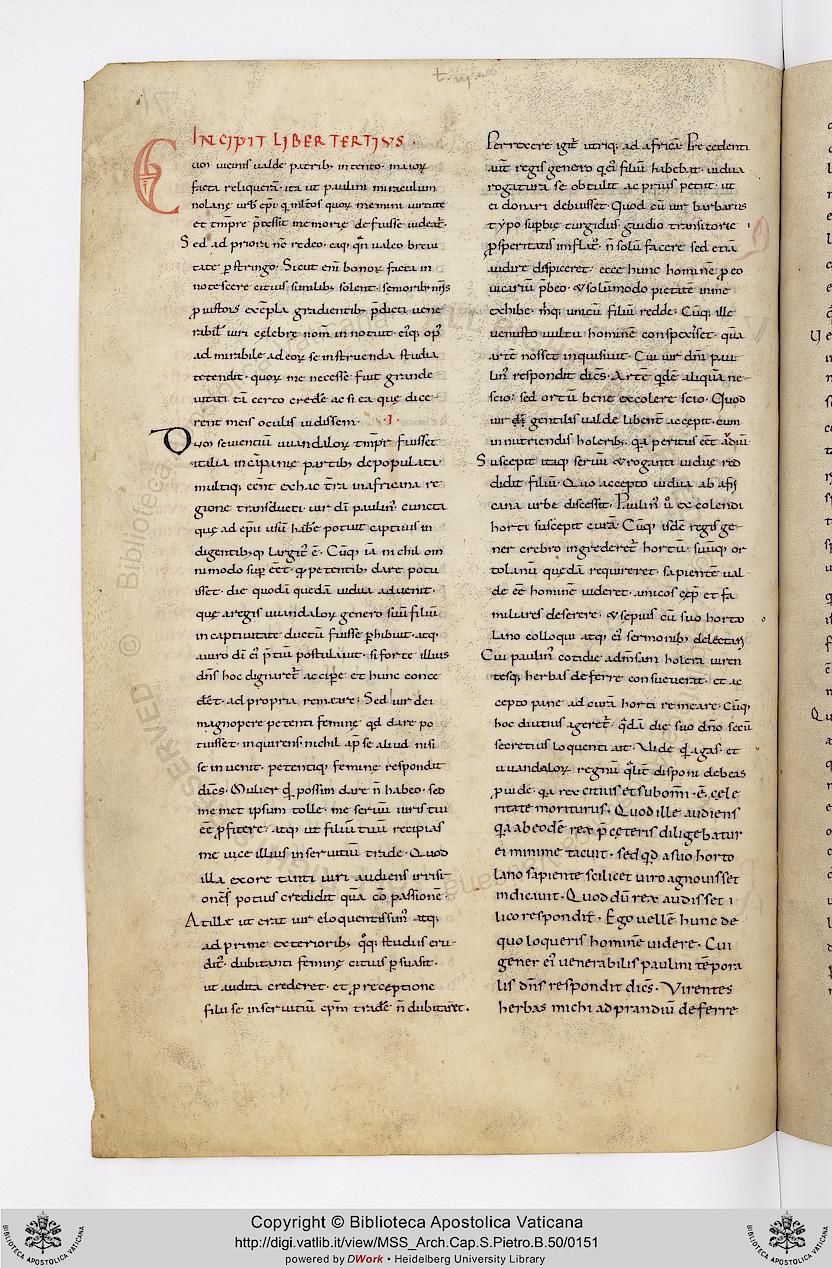 INCIPIT LIBER TERTIUS.
uicinis ualde patrib; intento. maioꝝ
facta reliquerā. ita ut paulini miraculum
nolanę urbis ep̄i
et defuisse
Sed ad priora redeo. eaq; ualeo breui
tate p̄stringo. Sicut enī bonoꝝ facta in
notescere citius similib; solent. seniorib; nr̄is
p iustoꝝ exēpla gradientib; p̄dicti uene
rabil' uiri celebre nom̄ innotuit. eiq; op'
admirabile adeoꝝ se instruenda studia
tetendit. quoꝝ me necesse fuit grande
uitati tā certo credē ac si ea quę dice
rent meis oculis uidissem. .I.
Dum seuientiū uuandaloꝝ tēpr̄ fuisset
italia in cāpanię partib; depopulata.
multiq; eēnt ex hac tr̄ra in africana re
gione transducti. uir dn̄i paulin' cuncta
quę ad ep̄ii usū habē potuit captiuis in
digentib;q; largit' ē. Cūq; iā nichil om
nimodo sup eēt. petentib; dare potu
isset. die quodā quedā uidua aduenit.
quę a regis uuandaloꝝ genero suū filiū
in captiuitate ductū fuisse phibuit. atq;
a uiro dī ei' p̄tiū postulauit. si forte illius
dn̄s hoc dignaret' accipe. et hunc conce
dēt. ad propria remeare. Sed uir dei
magnopere petenti feminę qd dare po
tuisset inquirens. nichil ap se aliud nisi
se inuenit. petentiq; feminę respondit
dicēs. Mulier qd possim dare n̄ habeo. sed
memet ipsum tolle. me seruū iuris tui
eē pfitere. atq; ut filiū tuū recipias
me uice illius in seruitiū trade. Quod
illa ex ore tanti uiri audiens irrisi
onē potius credidit quā cōpassionē.
At ille ut erat uir eloquentissim' atq;
adprime exteriorib; qq; studiis eru
dit'. dubitanti feminę citius psuasit.
ut audita crederet. et p receptione
filii se in seruitiū ep̄m tradē n̄ dubitaret.
Perrexere igit' utriq; ad africā. Precedenti
aut̄ regis genero q ei' filiū habebat. uidua
rogatura se obtulit. ac prius petiit. ut
ei donari debuisset. Quod cū uir barbarus
typo supbię turgidus. gaudio transitorię
psperitatis inflat'. n̄ solū facere sed etiā
audire despiceret. ecce hunc hominē p eo
uicariū p̄beo. & solūmodo pietatē in me
exhibe. mihiq; unicū filiū redde. Cūq; ille
uenusto uultu hominē conspexisset. quā
artē nosset inquisiuit. Cui uir dn̄i pau
lin' respondit dicēs. Artē qdē aliquā ne
scio. sed ortū bene excolere scio. Quod
uir gentilis ualde libent' accepit. cum
in nutriendis holerib; qa peritus eēt audiuit
Suscepit itaq; seruū & roganti uiduę red
didit filiū. Quo accepto uidua ab afri
cana urbe discessit. Paulin' u' excolendi
horti suscepit curā. Cūq; isdē regis ge
ner crebro ingrederet' hortū. suūq; or
tolanū quędā requireret. sapientē ual
de eē hominē uideret. amicos cępit & fa
miliares deserere. & sepius cū suo horto
lano colloqui. atq; ei' sermonib; delectari
Cui paulin' cotidie ad mensam holera uiren
tesq; herbas deferre consueuerat. et ac
cepto pane ad curā horti remeare. Cūq;
hoc diutius ageret'. qdā die suo dn̄o secū
secretius loquenti ait. Uide qd agas. et
uuandaloꝝ regnū qlit' disponi debeas
puide. qa rex citius et sub om̄i ē cele
ritate moriturus. Quod ille audiens
qa ab eodē rege p̄ ceteris diligebatur
ei minime tacuit. sed qd a suo horto
lano sapiente scilicet uiro agnouisset
indicauit. Quod dū rex audisset i
lico respondit. Ego uellē hunc de
quo loqueris hominē uidere. Cui
gener ei' uenerabilis paulini tēpora
lis dn̄s respondit dicēs. Virentes
herbas michi ad prandiū deferre
Copyright © Biblioteca Apostolica Vaticana
http://digi.vatlib.it/view/MSS_Arch.Cap.S.Pietro.B.50/0151
powered by DWork • Heidelberg University Library
BIBLIOTECA APOSTOLICA VATICANA
BIBLIOTECA APOSTOLICA VATICANA